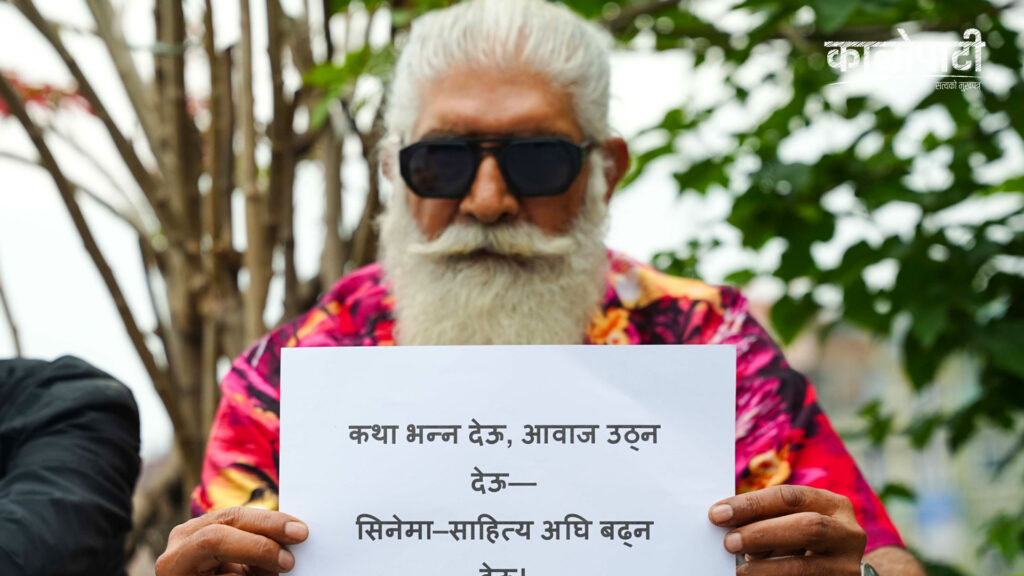 कालोपाटी
सत्यको मुखपत्र
कथा भन्न देऊ, आवाज उठ्न
देऊ—
सिनेमा–साहित्य अघि बढ्न
देऊ!